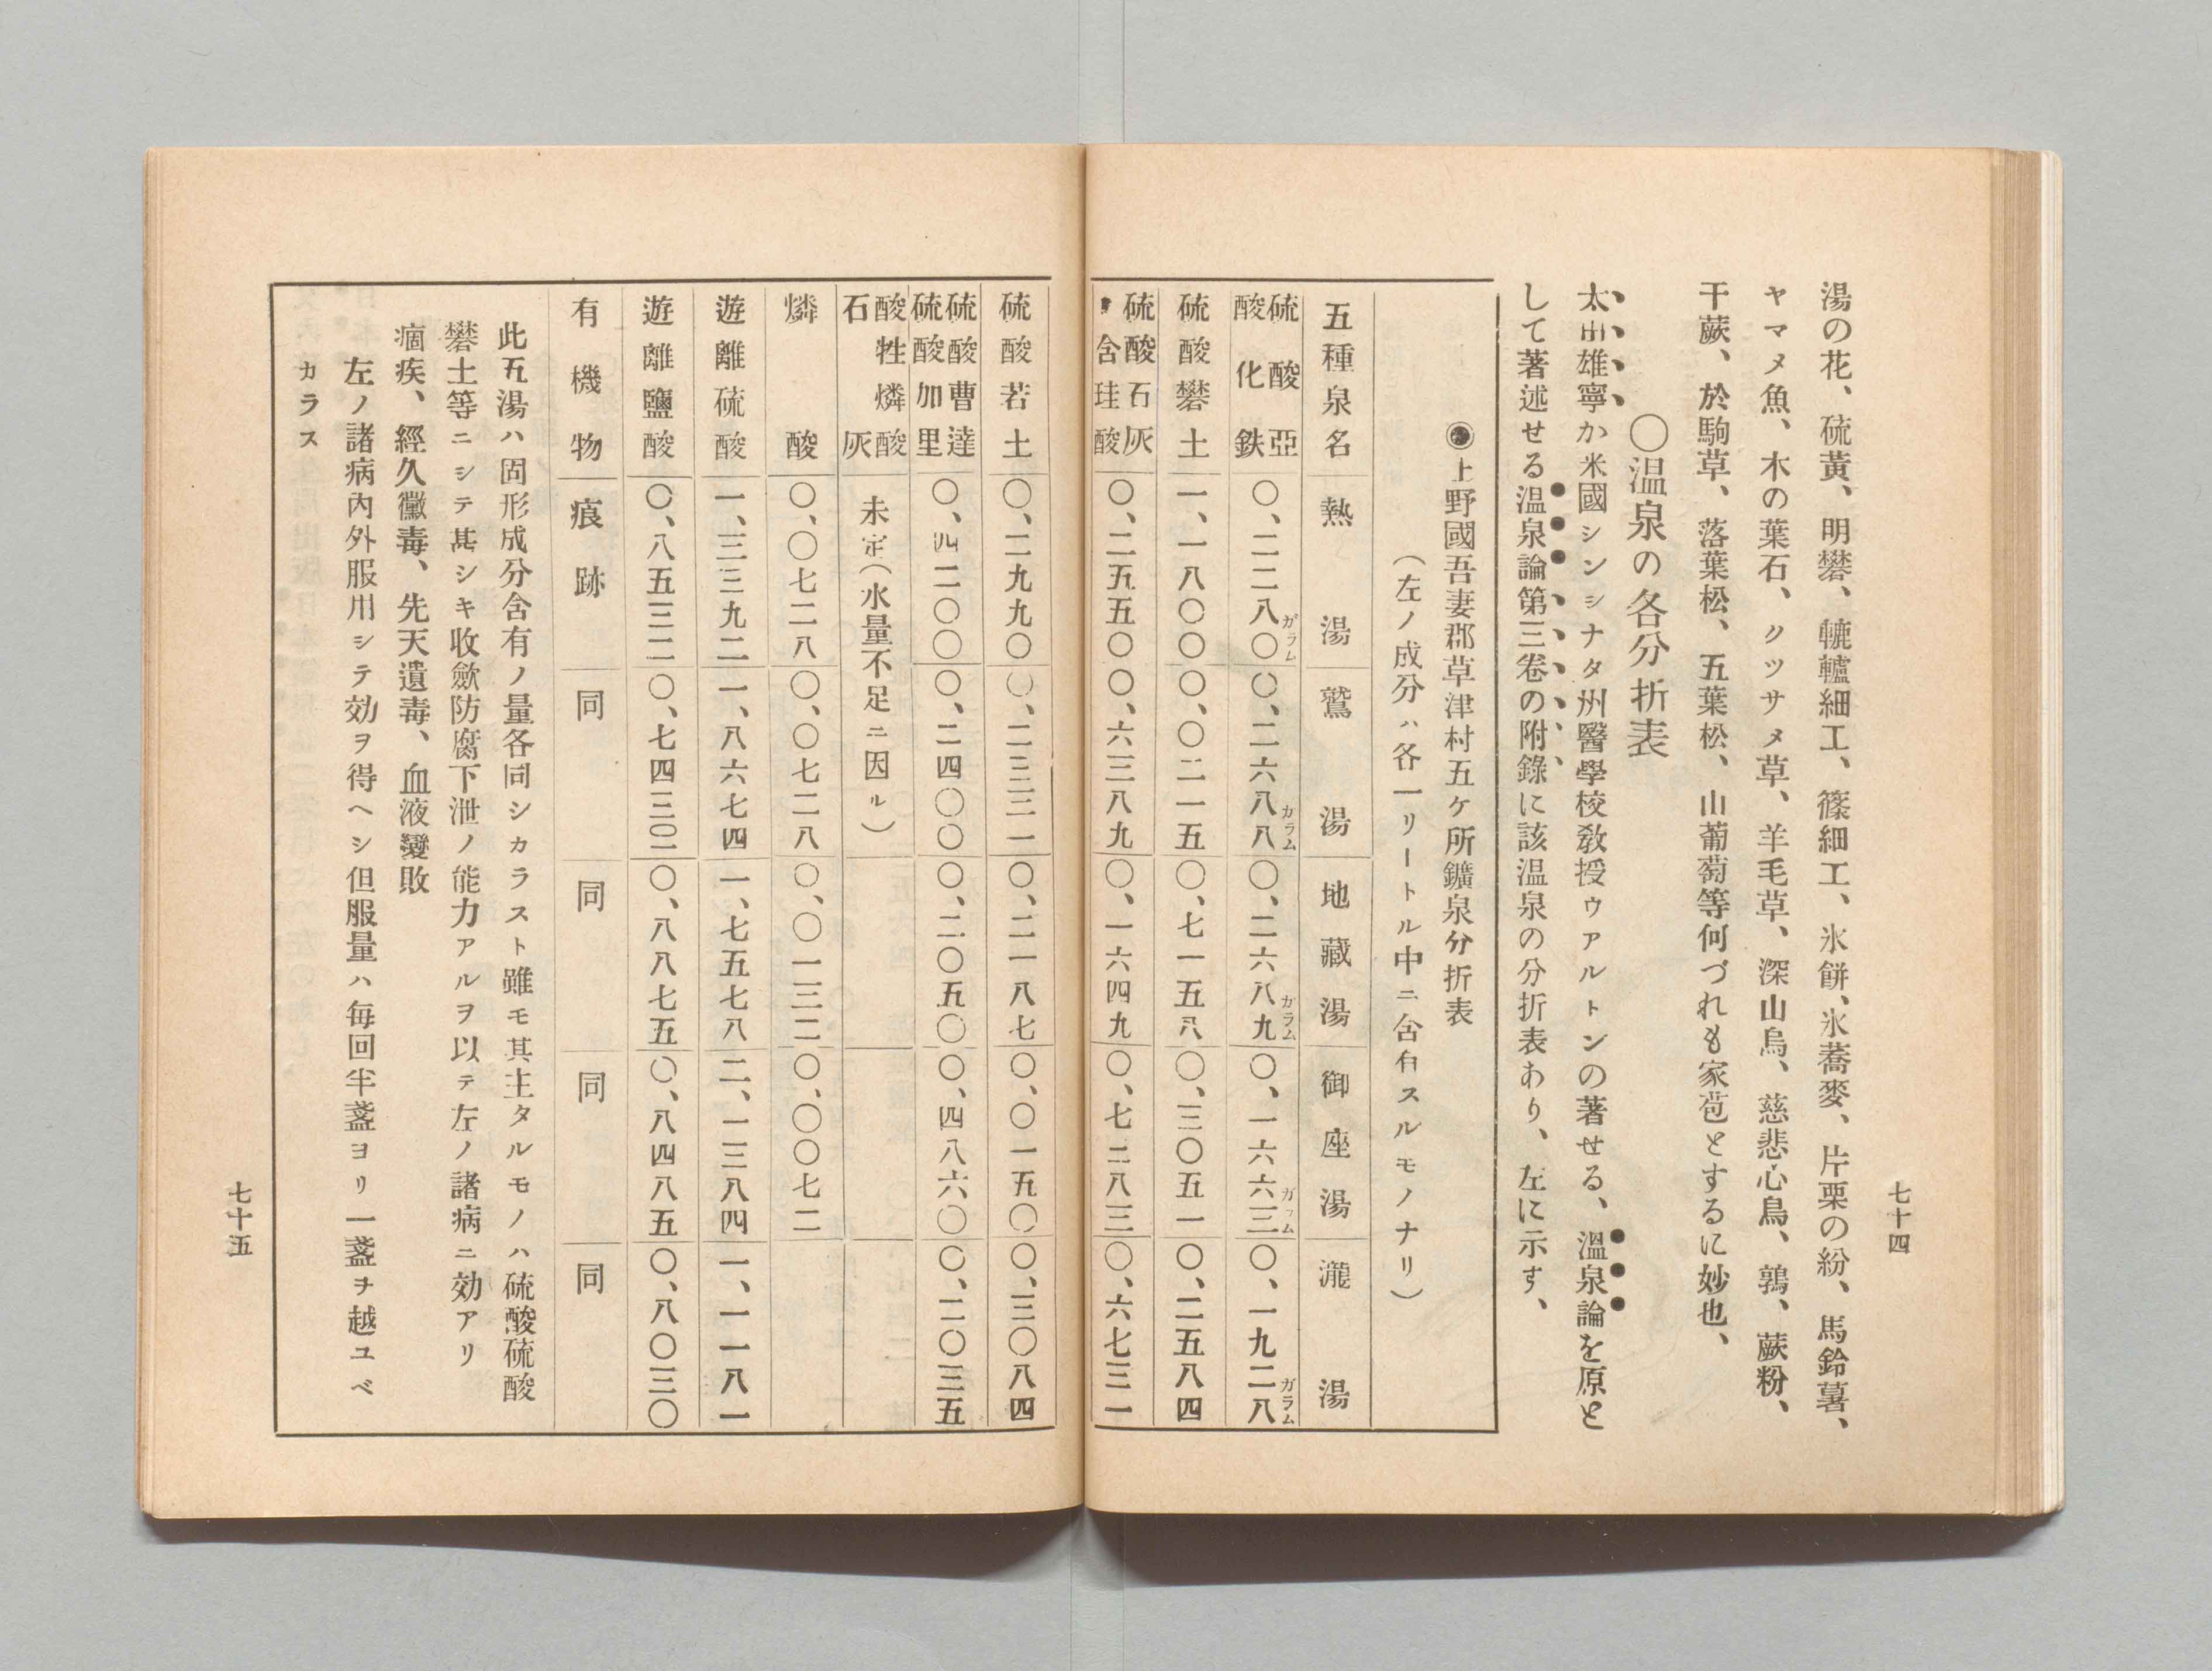 七十四
湯の花、硫黃、明礬、轆轤細工、篠細工、氷餅、氷蕎麥、片栗の紛、馬鈴薯、
ヤマメ魚、木の葉石、クツサメ草、羊毛草、深山鳥、慈悲心鳥、鶉、蕨粉、
干蕨、於駒草、落葉松、五葉松、山葡萄等何づれも家苞とするに妙也、
〇温泉の各分折表
太田雄寧か米國シンシナタ州醫學校敎授ウアルトンの著せる、溫泉論を原と
して著述せる温泉論第三卷の附錄に該温泉の分折表あり、左に示す、
◉上野國吾妻郡草津村五ケ所鑛泉分折表
(左ノ成分ハ各一リートル中ニ含有スルモノナリ)
五種泉名 熱湯 鷲湯 地藏湯 御座湯 瀧湯
硫酸酸化亞鉄 〇、二二八〇ガラム 〇、二六八八カラム 〇、二六八九ガラム 〇、一六六三 〇、一九二八ガラム
硫酸礬土 一、一八〇〇 〇、〇二一五 〇、七一五八 〇、三〇五一 〇、二五八四
硫酸石灰含珪酸 〇、二五五〇 〇、六三八九 〇、一六四九 〇、七二八三 〇、六七三一
硫酸若土 〇、二九九〇 〇、二三三一 〇、二一八七 〇、〇一五〇 〇、三〇八四
硫酸曹達硫酸加里 〇、四二〇〇 〇、二四〇〇 〇、二〇五〇 〇、四八六〇 〇、二〇三五
酸性燐酸石灰 未定(水量不足ニ因ル)
燐酸 〇、〇七二八 〇、〇七二八 〇、〇一三二 〇、〇〇七二
遊離硫酸 一、三三九二 一、八六七四 一、七五七八 二、一三八四 一、一一八一
遊離鹽酸 〇、八五三二 〇、七四三〇二 〇、八八七五 〇、八四八五 〇、八〇三〇
有機物 痕跡 同 同 同 同
此五湯ハ固形成分含有ノ量各同シカラスト雖モ其主タルモノハ硫酸硫酸
礬土等ニシテ其シキ收斂防腐下泄ノ能力アルヲ以テ左ノ諸病ニ効アリ
痼疾、經久黴毒、先天遺毒、血液變敗
左ノ諸病內外服用シテ効ヲ得ヘシ但服量ハ每回半盞ヨリ一盞ヲ越ユベ
カラス
七十五